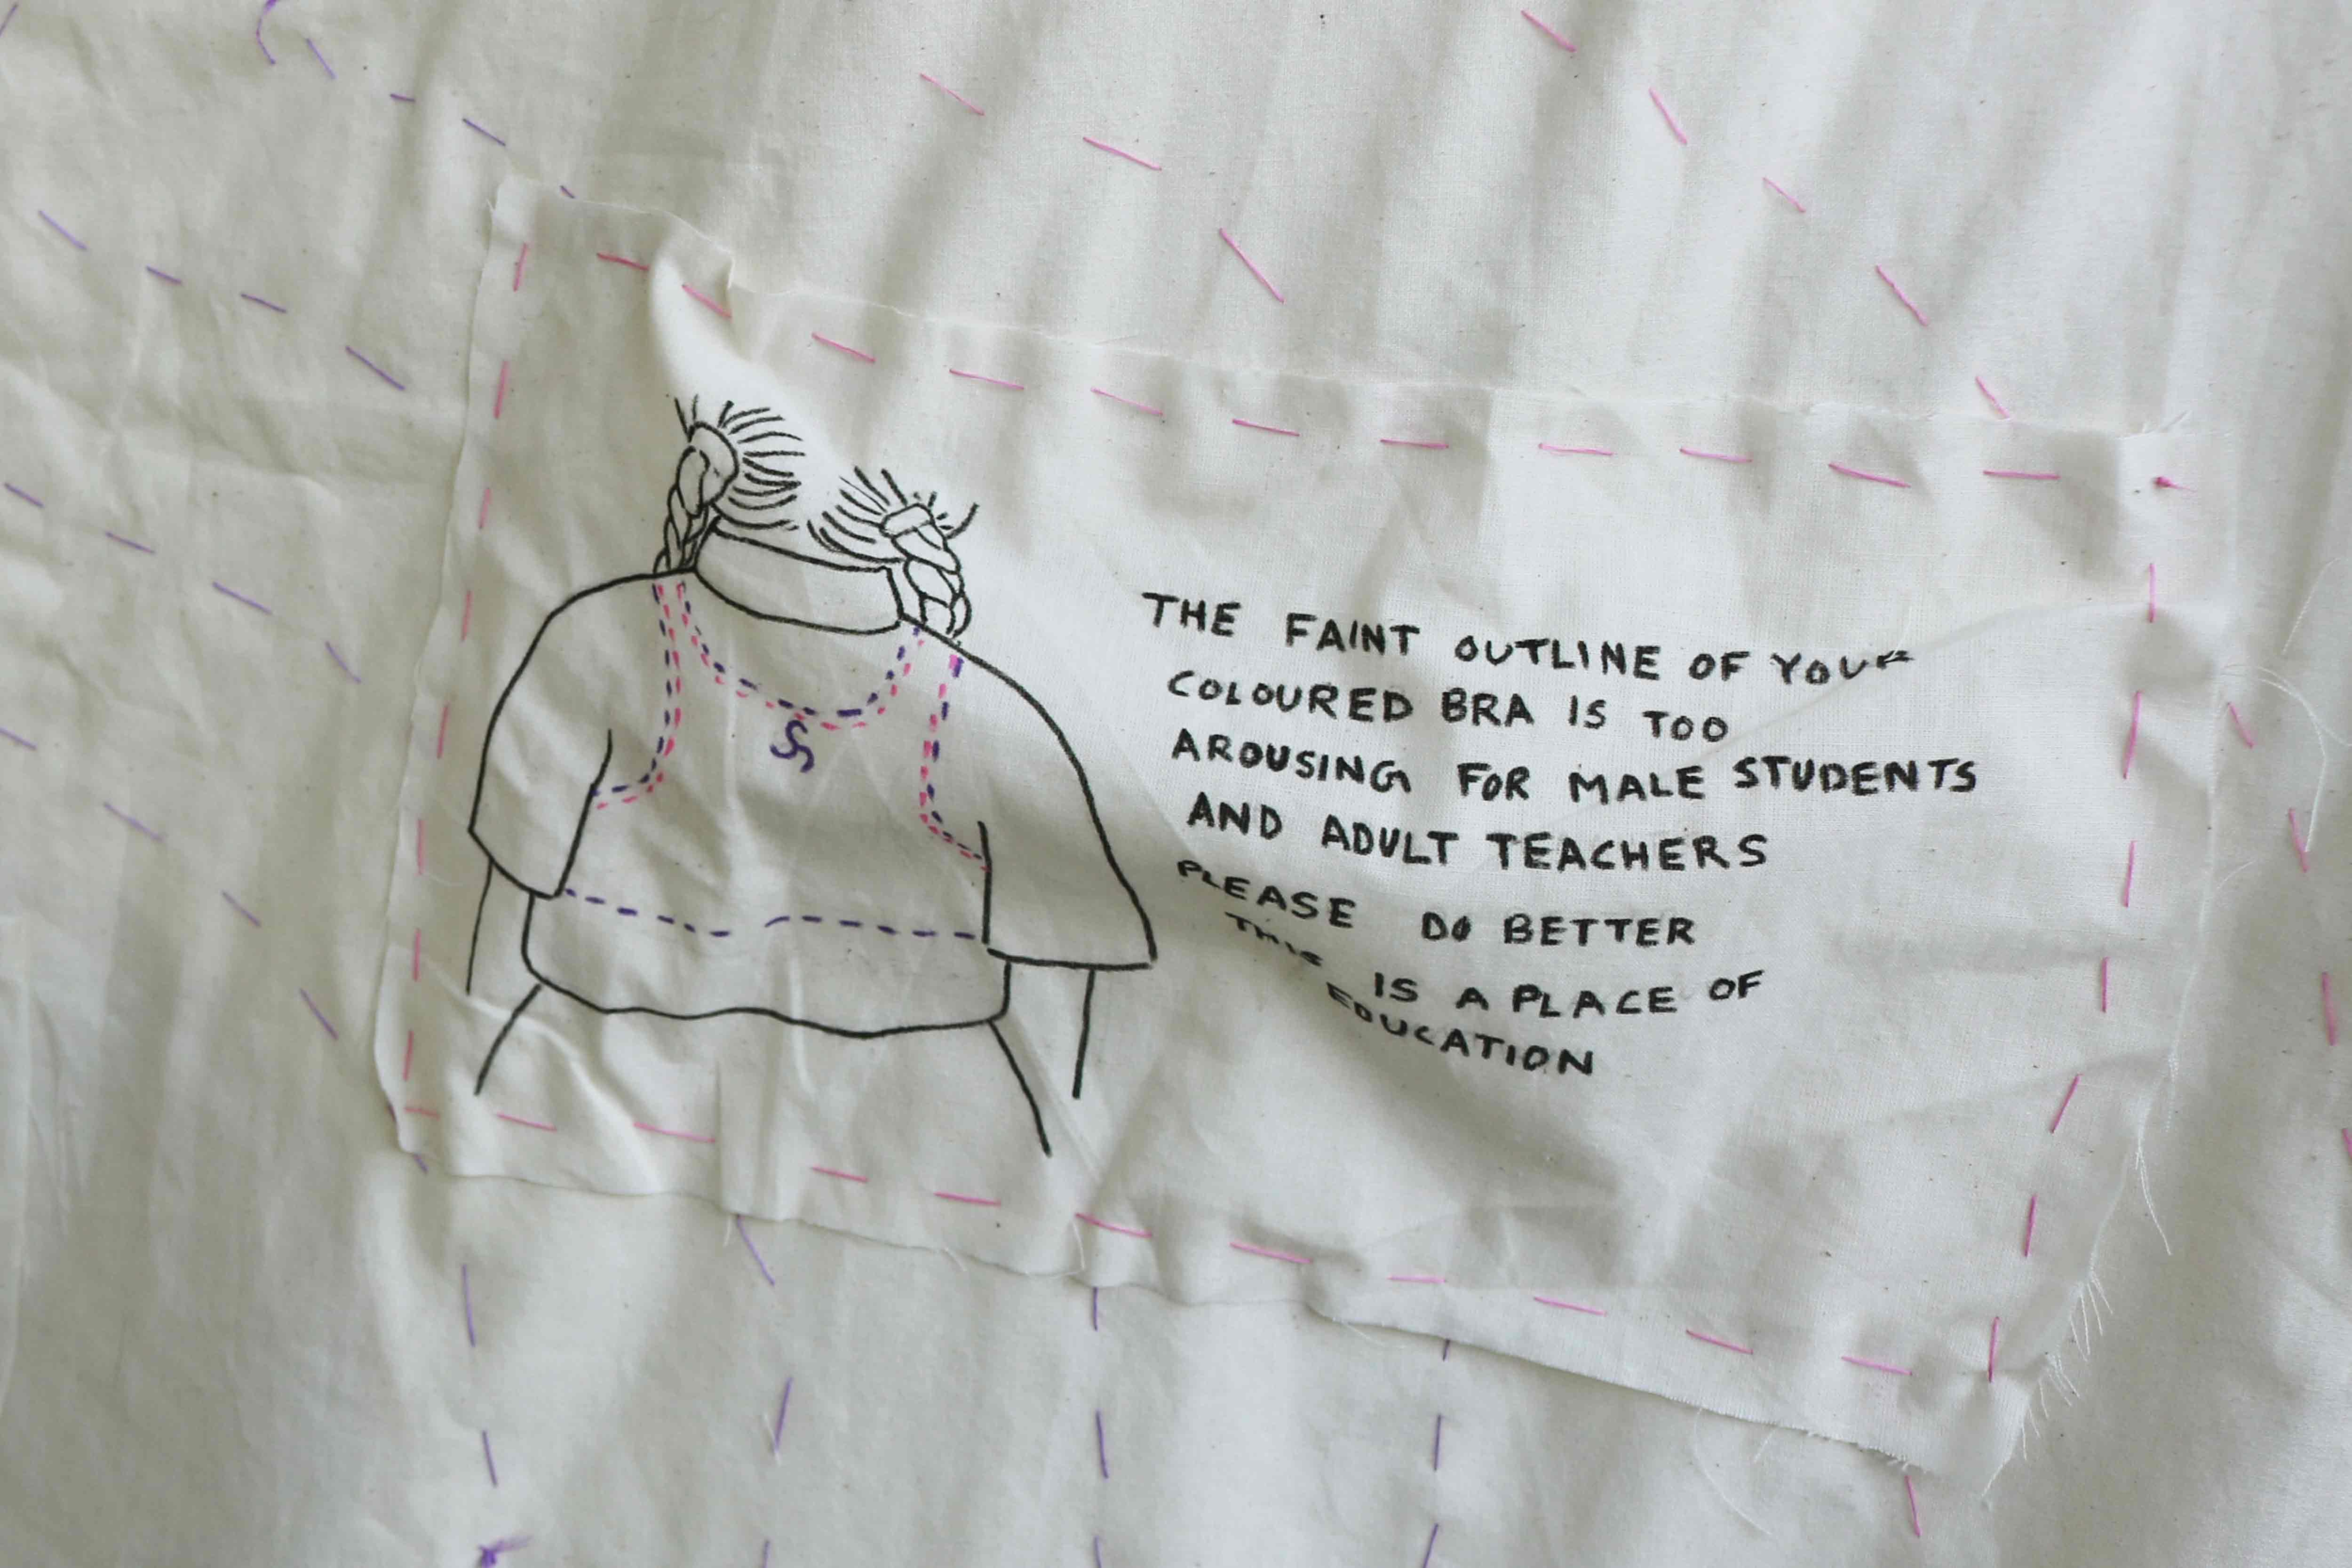 THE FAINT OUTLINE OF YOUR
COLOURED BRA IS TOO
AROUSING FOR MALE STUDENTS
AND ADULT TEACHERS
PLEASE DO BETTER
THIS IS A PLACE OF
EDUCATION